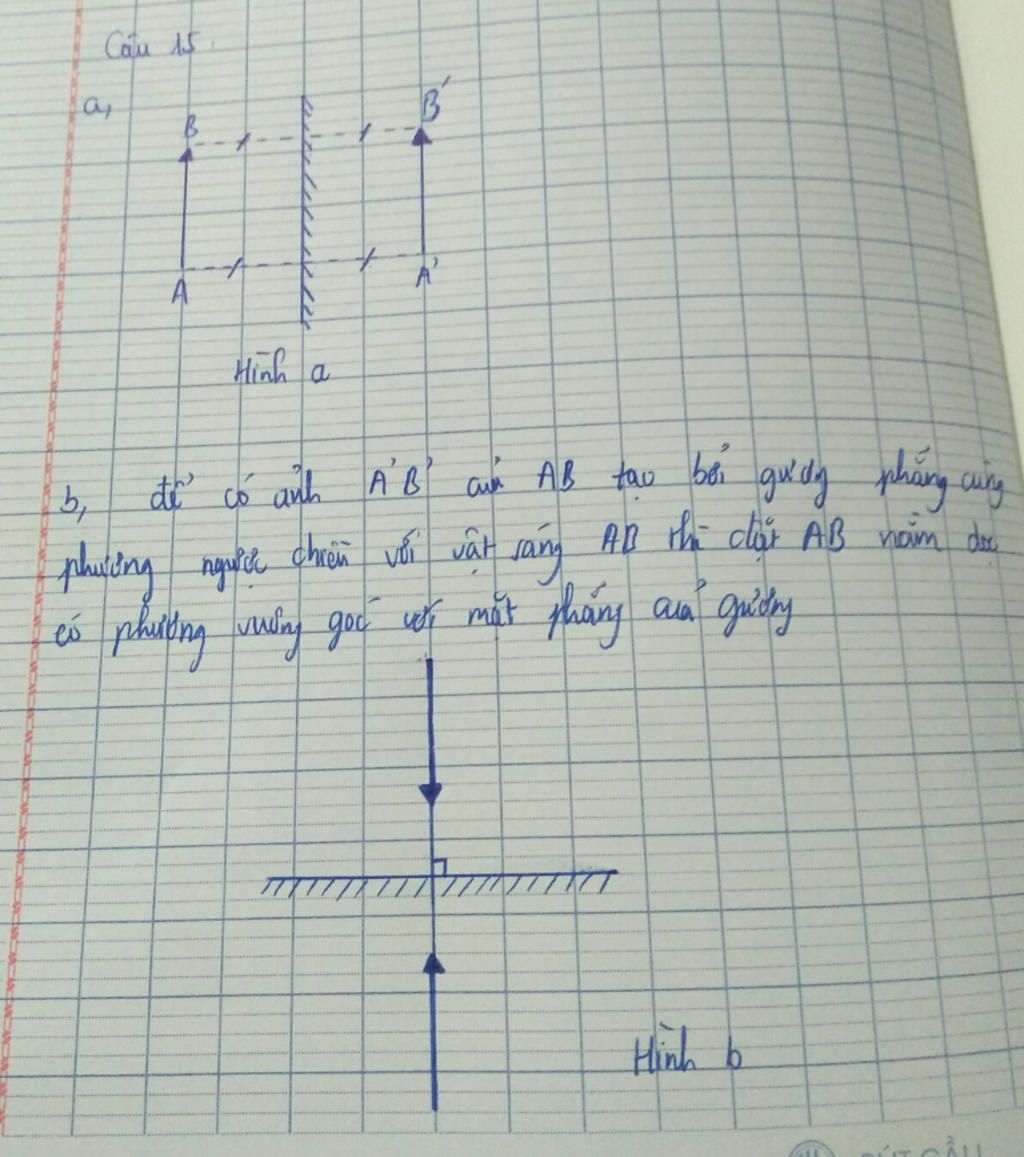 Câu 15.
a,
B B'
A A'
Hình a
b, để có ảnh A'B' của AB tạo bởi gương phẳng cùng
phương ngược chiều với vật sáng AB thì đặt AB nằm dọc
có phương vuông góc với mặt phẳng của gương
Hình b
BÚT